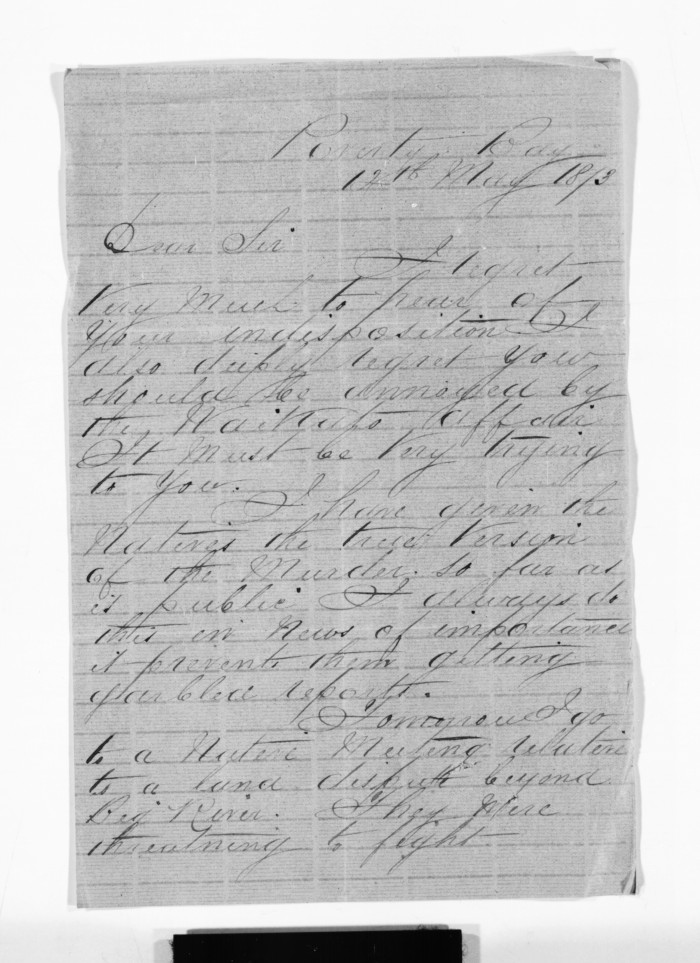 Poverty Bay
12th May 1873
Dear Sir
I regret
Very Much to hear of
Your indisposition I
also deeply regret you
should be annoyed by
the Waikato Affair
It Must be Very trying
to You.
I have given the
Natives the true Version
of the Murder so far as
is public I always do
this in News of importance
it prevents them getting
garbled reports.
Tomorrow I go
to a Native Meeting relative
to a land dispute beyond
Big River. They Were
threatning to fight